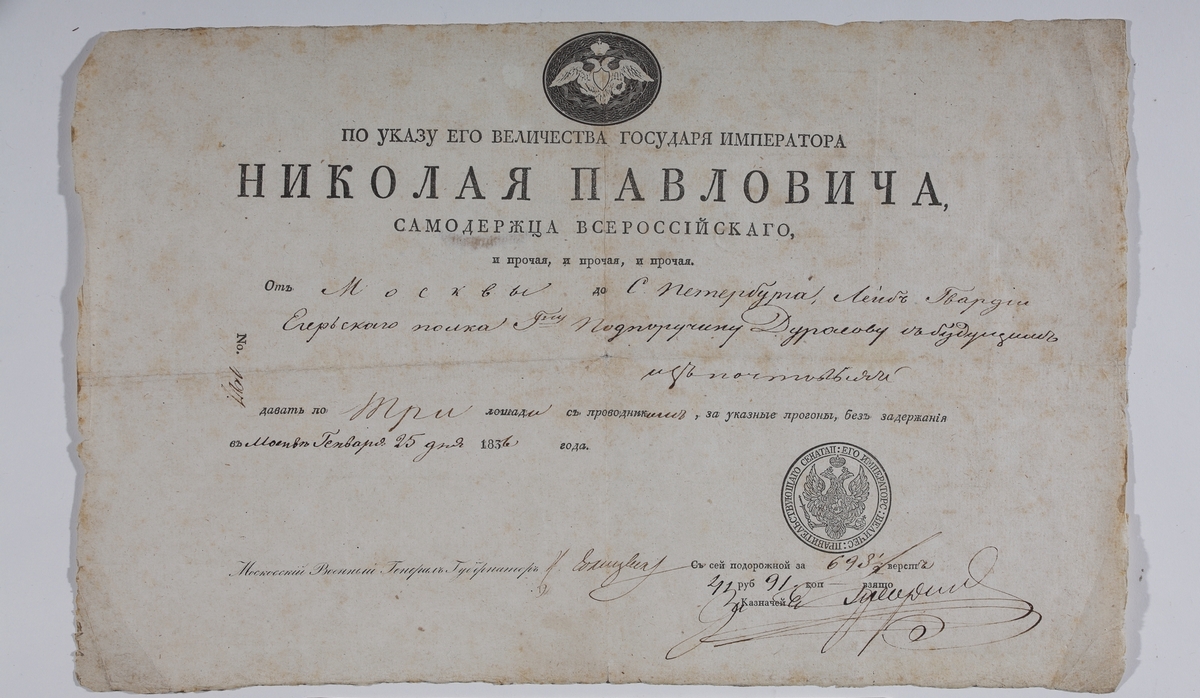 ПО УКАЗУ ЕГО ВЕЛИЧЕСТВА ГОСУДАРЯ ИМПЕРАТОРА
НИКОЛАЯ ПАВЛОВИЧА,
САМОДЕРЖЦА ВСЕРОССІЙСКАГО,
и прочая, и прочая, и прочая.
Отъ Москвы до С. Петербурга, Лейбъ Гвардіи
Егерьскаго полка Гну Подпоручику Дурасову съ будущимъ
изъ почтовыхъ
No.
давать по Три лошади съ проводникомъ, за указные прогоны, безъ задержанія
въ Москвѣ Генваря 25 дня 1836 года.
ПРАВИТЕЛЬСТВУЮЩАГО СЕНАТАП: ЕГО ИМПЕРАТОРС: ВЕЛИЧЕС:
Московскій Военный Генералъ Губернаторъ
Съ сей подорожной за 698½ верстъ
руб 91 коп взято
Казначей